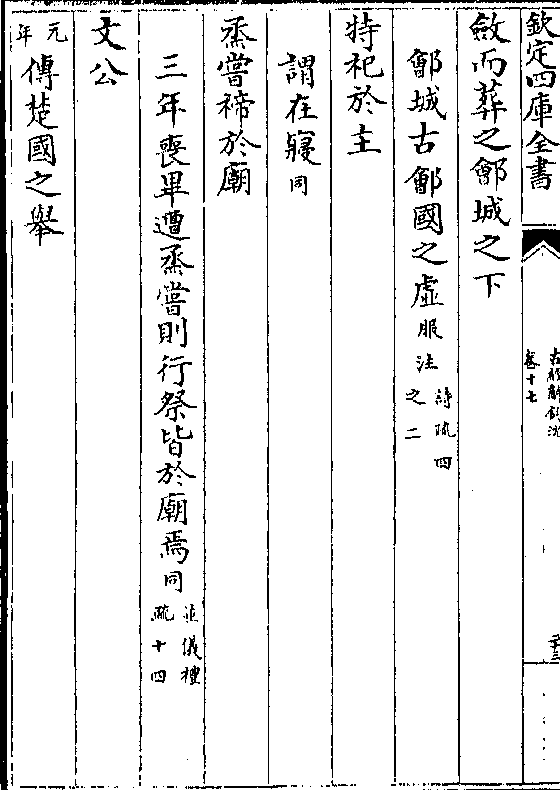 欽定四庫全書
古經解鉤沈
卷十七
斂而葬之鄶城之下
鄶城古鄶國之虛服注詩疏四之二
特祀於主
謂在寢同
烝嘗禘於廟
三年喪畢遭烝嘗則行祭皆於廟焉同並儀禮疏十四
文公
元年傳楚國之舉